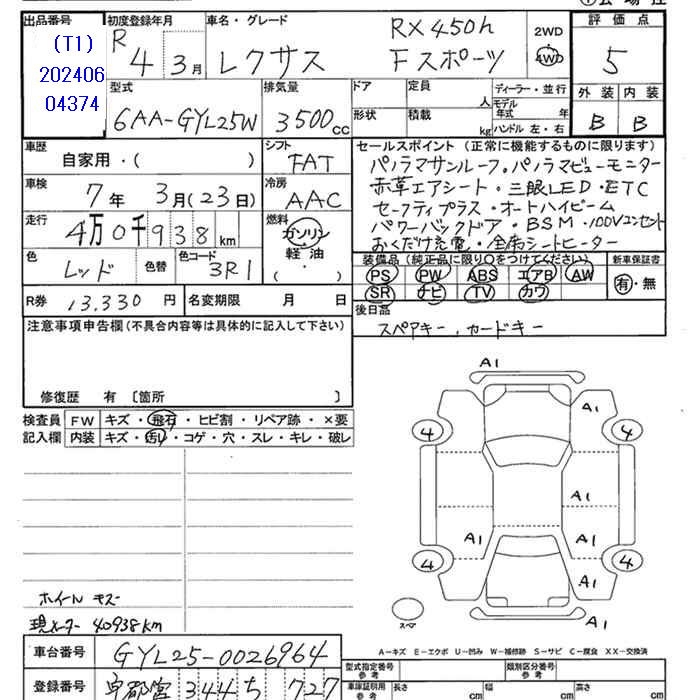 出品番号 初度登録年月 車名・グレード RX450h 2WD 評価点
(T1) R 4 3月 レクサス Fスポーツ 4WD 5
202406 型式 排気量 ドア 定員 ディーラー・並行 外装 内装
04374 6AA-GYL25W 3500cc 形状 積載 人 モデル年式 年 B B
kg ハンドル 左・右
車歴 シフト セールスポイント (正常に機能するものに限ります)
自家用・( ) FAT パノラマサンルーフ。パノラマビューモニター
車検 冷房 赤革エアシート・三眼LED・ETC
7年 3月(23日) AAC セーフティプラス・オートハイビーム
走行 燃料 パワーバックドア・BSM・100Vコンセント
4万0千938km ガソリン おくだけ充電・全席シートヒーター
色 色替 色コード 軽油 装備品 (純正品に限り○をつけてください) 新車保証書
レッド 3R1 ・( ) PS PW ABS エアB AW 有・無
SR ナビ TV カワ
R券 13,330円 名変期限 月 日 後日品
注意事項申告欄(不具合内容等は具体的に記入して下さい) スペアキー、カードキー
修復歴 有 〔箇所 〕
検査員 FW キズ・飛石・ヒビ割・リペア跡・×要
記入欄 内装 キズ・汚れ・コゲ・穴・スレ・キレ・破レ
A1
A1
4 4
A1
A1 A1
4 4
A1
スペア
ホイール キズ
現メーター 40938km
A-キズ E-エクボ U-凹み W-補修跡 S-サビ C-腐食 XX-交換済
車台番号 GYL25-0026964 型式指定番号 参考 類別区分番号 参考
登録番号 宇都宮 344 ち 727 車庫証明用 参考 長さ cm 幅 cm 高さ cm